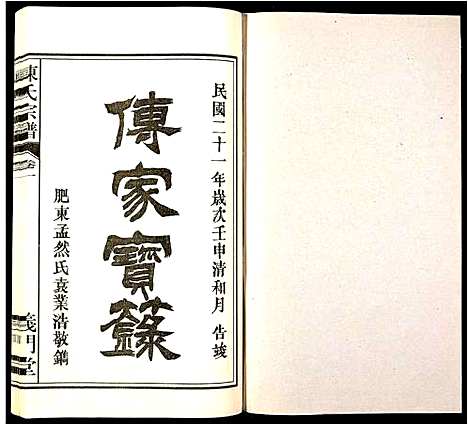 民國二十一年歲次壬申清和月 告竣
傳家寶籙
肥東孟然氏袁業浩敬鐫
陳氏宗譜 卷一
義門堂